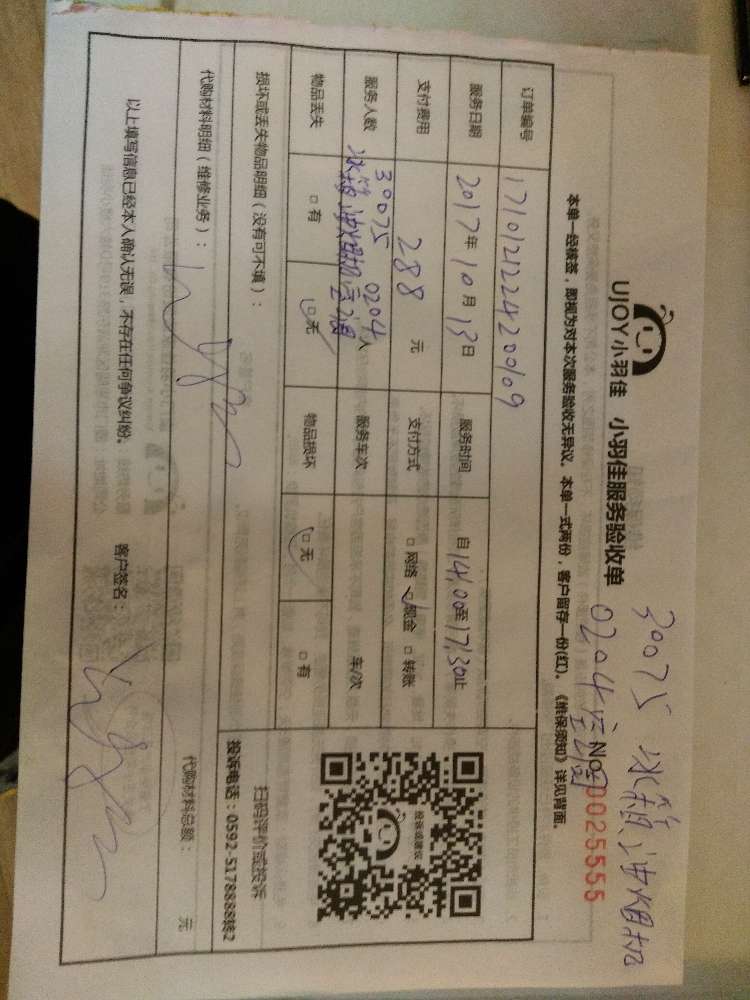 30075 冰箱 油烟机
0204 空调
UJOY小羽佳 小羽佳服务验收单
No 0025555
本单一经核签，即视为对本次服务验收无异议。本单一式两份，客户留存一份(红)。《维保须知》详见背面。
订单编号 1710121224200109
服务日期 2017年10月13日 服务时间 自14:00至17:30止
支付费用 288 元 支付方式 □ 网络 □ 现金 □ 转账
服务人数 30075 0204 人 服务车次 车/次
冰箱 油烟机 空调
物品丢失 □ 有 □ 无 物品损坏 □ 无 □ 有
损坏或丢失物品明细（没有可不填）：
扫码评价或投诉
投诉电话：0592-5178888转2
代购材料明细（维修业务）：
代购材料总额： 元
以上填写信息已经本人确认无误，不存在任何争议纠纷。 客户签名：